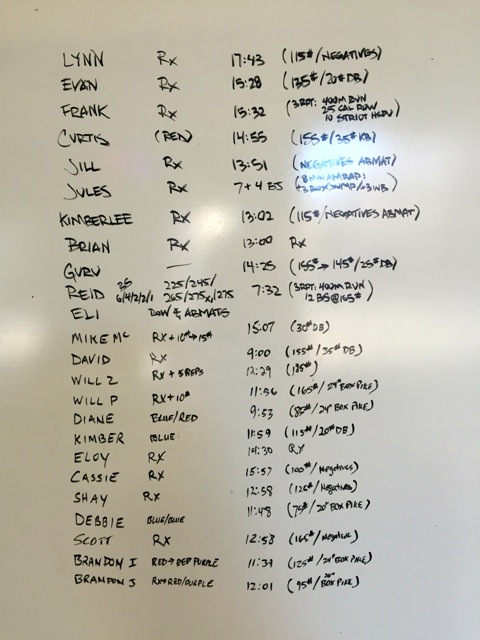 LYNN Rx 17:43 (115#/NEGATIVES)
EVAN Rx 15:28 (135#/20# DB)
FRANK Rx 15:32 (3RFT: 400M RUN
25 CAL ROW
10 STRICT HSPU)
CURTIS (RED) 14:55 (155#/35# KB)
JILL Rx 13:51 (NEGATIVES ABMAT)
JULES Rx 7+4 BJ (8MIN AMRAP:
+3 BOX JUMP/+3WB)
KIMBERLEE Rx 13:02 (115#/NEGATIVES ABMAT)
BRIAN Rx 13:00 Rx
GURU — 14:25 (155#→145#/25# DB)
REID BS 6/4/2/2/1 225/245/ 265/275x1/275 7:32 (3RFT: 400M RUN
12 BS@165#)
ELI ROW & ABMATS
MIKE MC RX+10#→15# 15:07 (30# DB)
DAVID RX 9:00 (155#/35# DB)
WILL Z RX + 5 REPS 12:29 (185#)
WILL P RX+10# 11:56 (165#/24" BOX PIKE)
DIANE BLUE/RED 9:53 (85#/24" BOX PIKE)
KIMBER BLUE 11:59 (115#/20# DB)
ELOY RX 14:30 RX
CASSIE RX 15:57 (100#/Negatives)
SHAY RX 12:58 (125#/Negatives)
DEBBIE BLUE/BLUE 11:48 (75#/20" BOX PIKE)
SCOTT RX 12:58 (165#/Negative)
BRANDON I RED→RED PURPLE 11:39 (125#/24" BOX PIKE)
BRANDON J RX→RED/PURPLE 12:01 (95#/20" BOX PIKE)